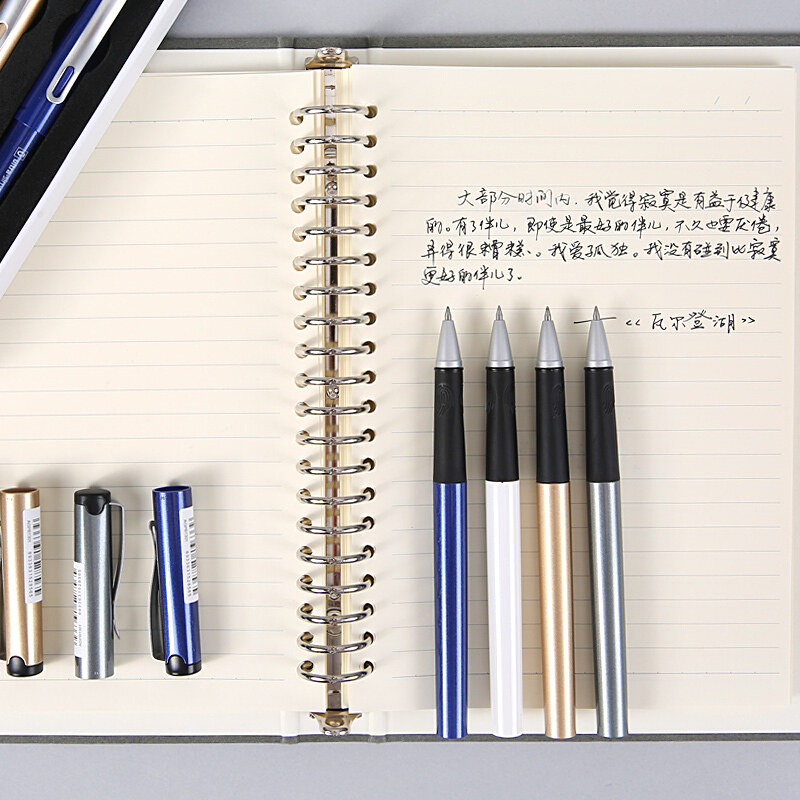 大部分时间内，我觉得寂寞是有益于健康
的。有了伴儿，即使是最好的伴儿，不久也要厌倦，
弄得很糟糕。我爱孤独。我没有碰到比寂寞
更好的伴儿了。
——《瓦尔登湖》